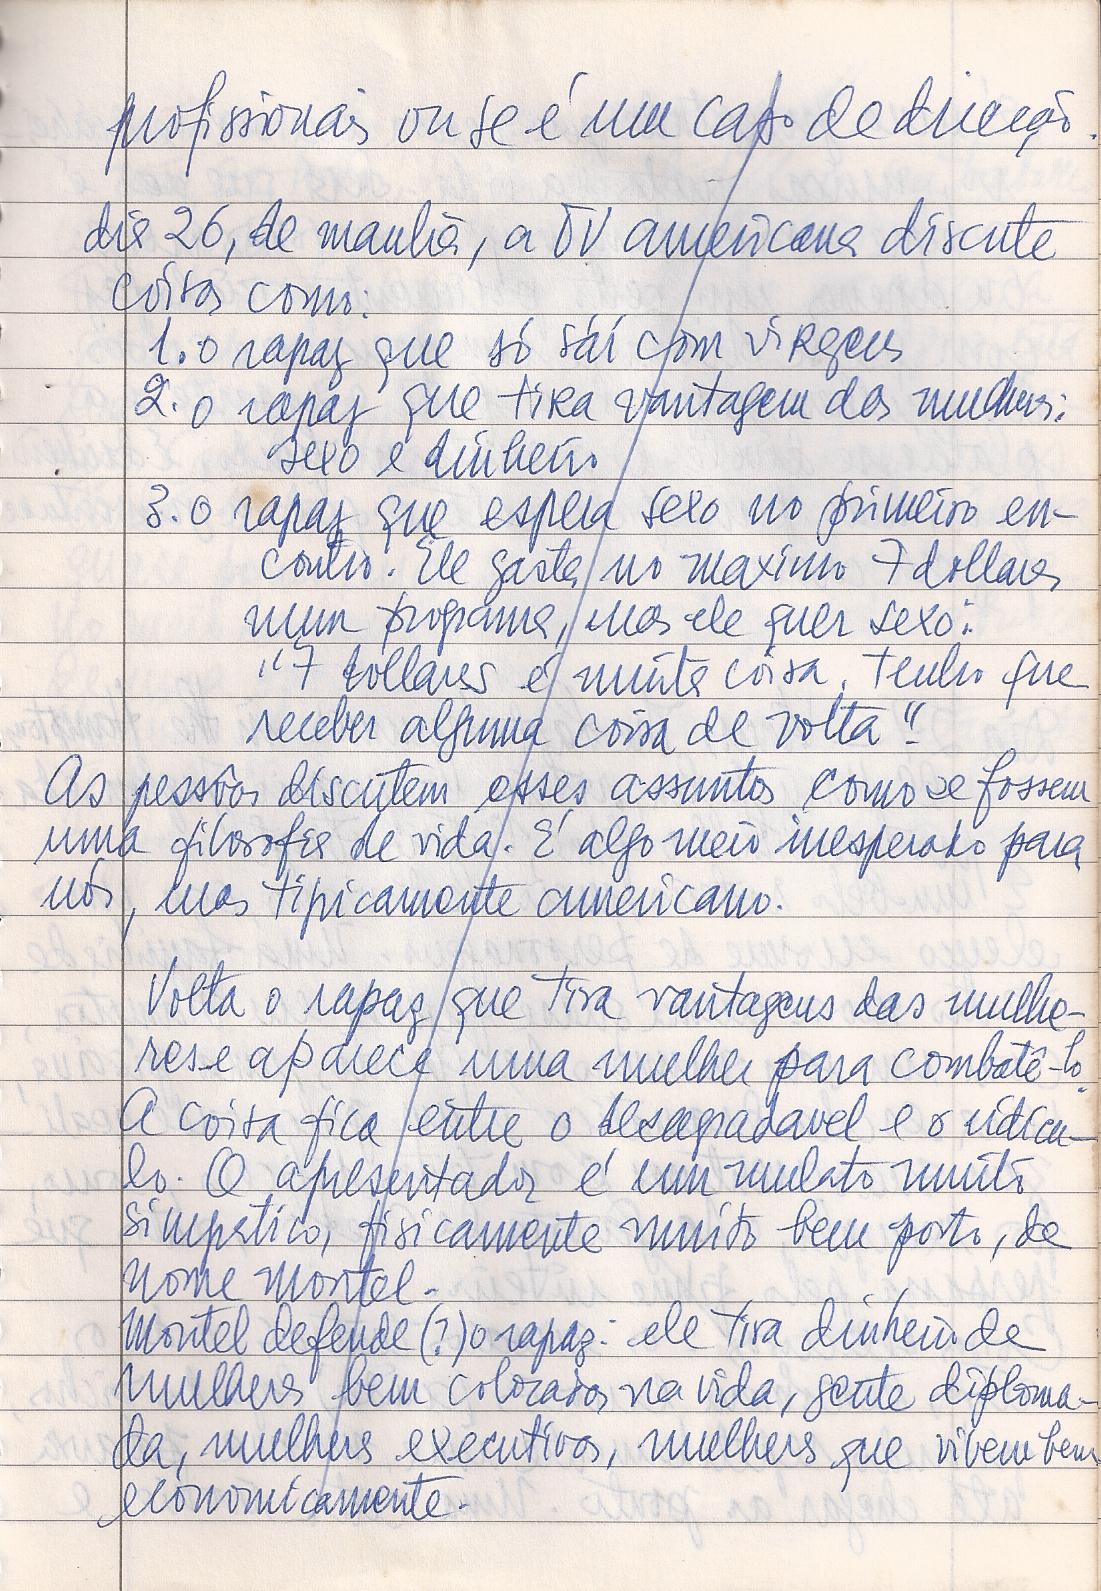 profissionais ou se é um caso de direção.
dia 26, de manhã, a TV americana discute
coisas como:
1. o rapaz que só sái com virgens
2. o rapaz que tira vantagem das mulheres:
sexo e dinheiro
3. o rapaz que espera sexo no primeiro en-
contro. Ele gasta, no maximo 7 dollares
num programa, mas ele quer sexo:
"7 dollares é muita coisa. Tenho que
receber alguma coisa de volta"!
As pessôas discutem esses assuntos como se fossem
uma filosofia de vida. É algo meio inesperado para
nós, mas tipicamente americano.
Volta o rapaz que tira vantagens das mulhe-
res e aparece uma mulher para combatê-lo.
A coisa fica entre o desagradavel e o ridicu-
lo. O apresentador é um mulato muito
simpático, fisicamente muito bem posto, de
nome Montel.
Montel defende (?) o rapaz: ele tira dinheiro de
mulheres bem colocadas na vida, gente diploma-
da, mulheres executivas, mulheres que vivem bem
economicamente.